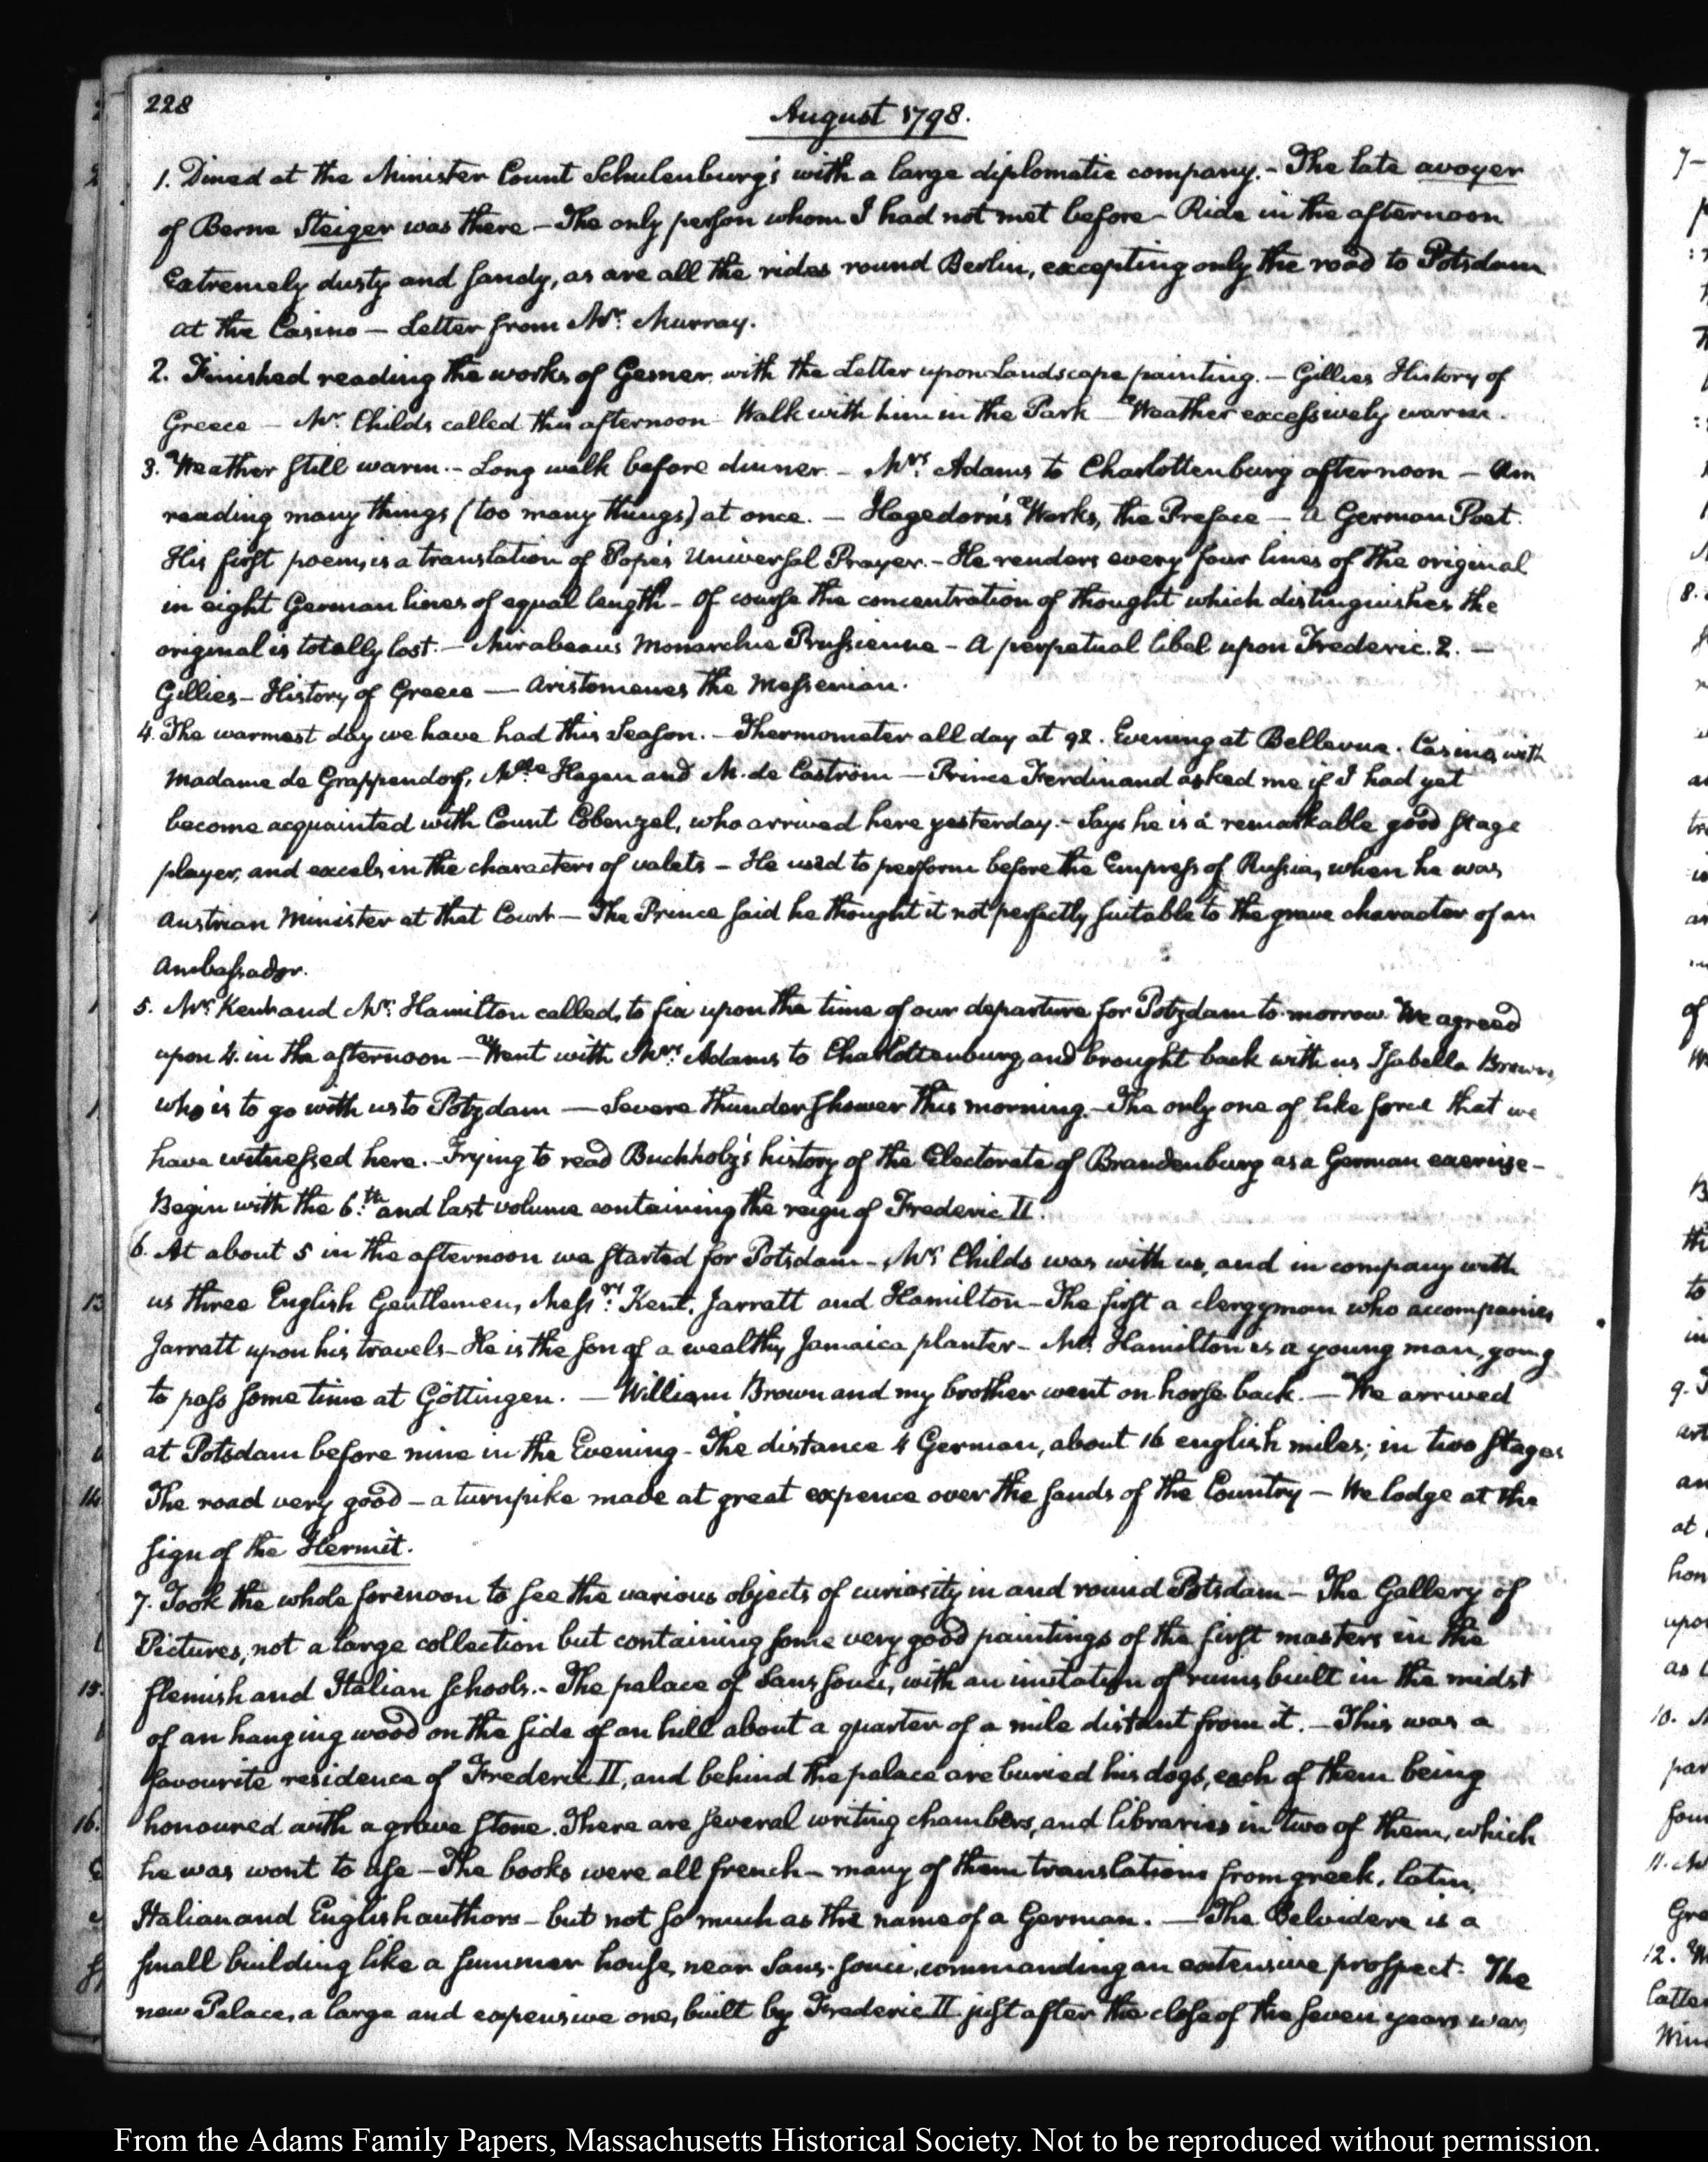 228
August 1798.
1. Dined at the Minister Count Schulenburg's with a large diplomatic company. - The late avoyer
of Berne Steiger was there - The only person whom I had not met before - Ride in the afternoon
Extremely dusty and sandy, as are all the rides round Berlin, excepting only the road to Potsdam
at the Casino - Letter from Mr. Murray.
2. Finished reading the works of Gesner, with the Letter upon Landscape painting. - Gillies History of
Greece - Mr. Childs called this afternoon - Walk with him in the Park - Weather excessively warm.
3. Weather still warm. - Long walk before dinner. - Mrs. Adams to Charlottenburg afternoon - Am
reading many things (too many things) at once. - Hagedorn's Works, the Preface - A German Poet.
His first poem, is a translation of Pope's Universal Prayer. - He renders every four lines of the original
in eight German lines of equal length - Of course the concentration of thought which distinguishes the
original is totally lost. - Mirabeau's Monarchie Prussienne - A perpetual libel upon Frederic. 2. -
Gillies - History of Greece - Aristomenes the Messenian.
4. The warmest day we have had this Season. - Thermometer all day at 92. Evening at Bellevue. Casino with
Madame de Grappendorf, Mlle Hagen and M. de Castrom - Prince Ferdinand asked me if I had yet
become acquainted with Count Cobenzel, who arrived here yesterday. - Says he is a remarkable good stage
player, and excels in the characters of valets - He used to perform before the Empress of Russia, when he was
Austrian Minister at that Court - The Prince said he thought it not perfectly suitable to the grave character of an
Ambassador.
5. Mr. Kent and Mr. Hamilton called, to fix upon the time of our departure for Potzdam to-morrow. We agreed
upon 4. in the afternoon - Went with Mrs. Adams to Charlottenburg and brought back with us Isabella Brown,
who is to go with us to Potzdam - Severe thunder shower this morning. - The only one of like force that we
have witnessed here. - Trying to read Buchholz's history of the Electorate of Brandenburg as a German exercise -
Begin with the 6th. and last volume containing the reign of Frederic II.
6. At about 5 in the afternoon we started for Potsdam - Mr. Childs was with us, and in company with
us three English Gentlemen, Messrs. Kent, Jarratt and Hamilton - The first a clergyman who accompanies
Jarratt upon his travels - He is the son of a wealthy Jamaica planter - Mr. Hamilton is a young man, going
to pass some time at Göttingen. - William Brown and my brother went on horse back. - We arrived
at Potsdam before nine in the Evening - The distance 4 German, about 16 english miles; in two stages
The road very good - a turnpike made at great expence over the sands of the Country - We lodge at the
sign of the Hermit.
7. Took the whole forenoon to see the various objects of curiosity in and round Potsdam - The Gallery of
Pictures, not a large collection but containing some very good paintings of the first masters in the
flemish and Italian schools. - The palace of Sans souci, with an imitation of ruins built in the midst
of an hanging wood on the side of an hill about a quarter of a mile distant from it. - This was a
favourite residence of Frederic II, and behind the palace are buried his dogs, each of them being
honoured with a grave stone. There are several writing chambers, and libraries in two of them, which
he was wont to use - The books were all french - many of them translations from greek, latin,
Italian and English authors - but not so much as the name of a German. - The Belvidere is a
small building like a summer house, near Sans-souci, commanding an extensive prospect. The
new Palace, a large and expensive one, built by Frederic II just after the close of the seven years war,
From the Adams Family Papers, Massachusetts Historical Society. Not to be reproduced without permission.